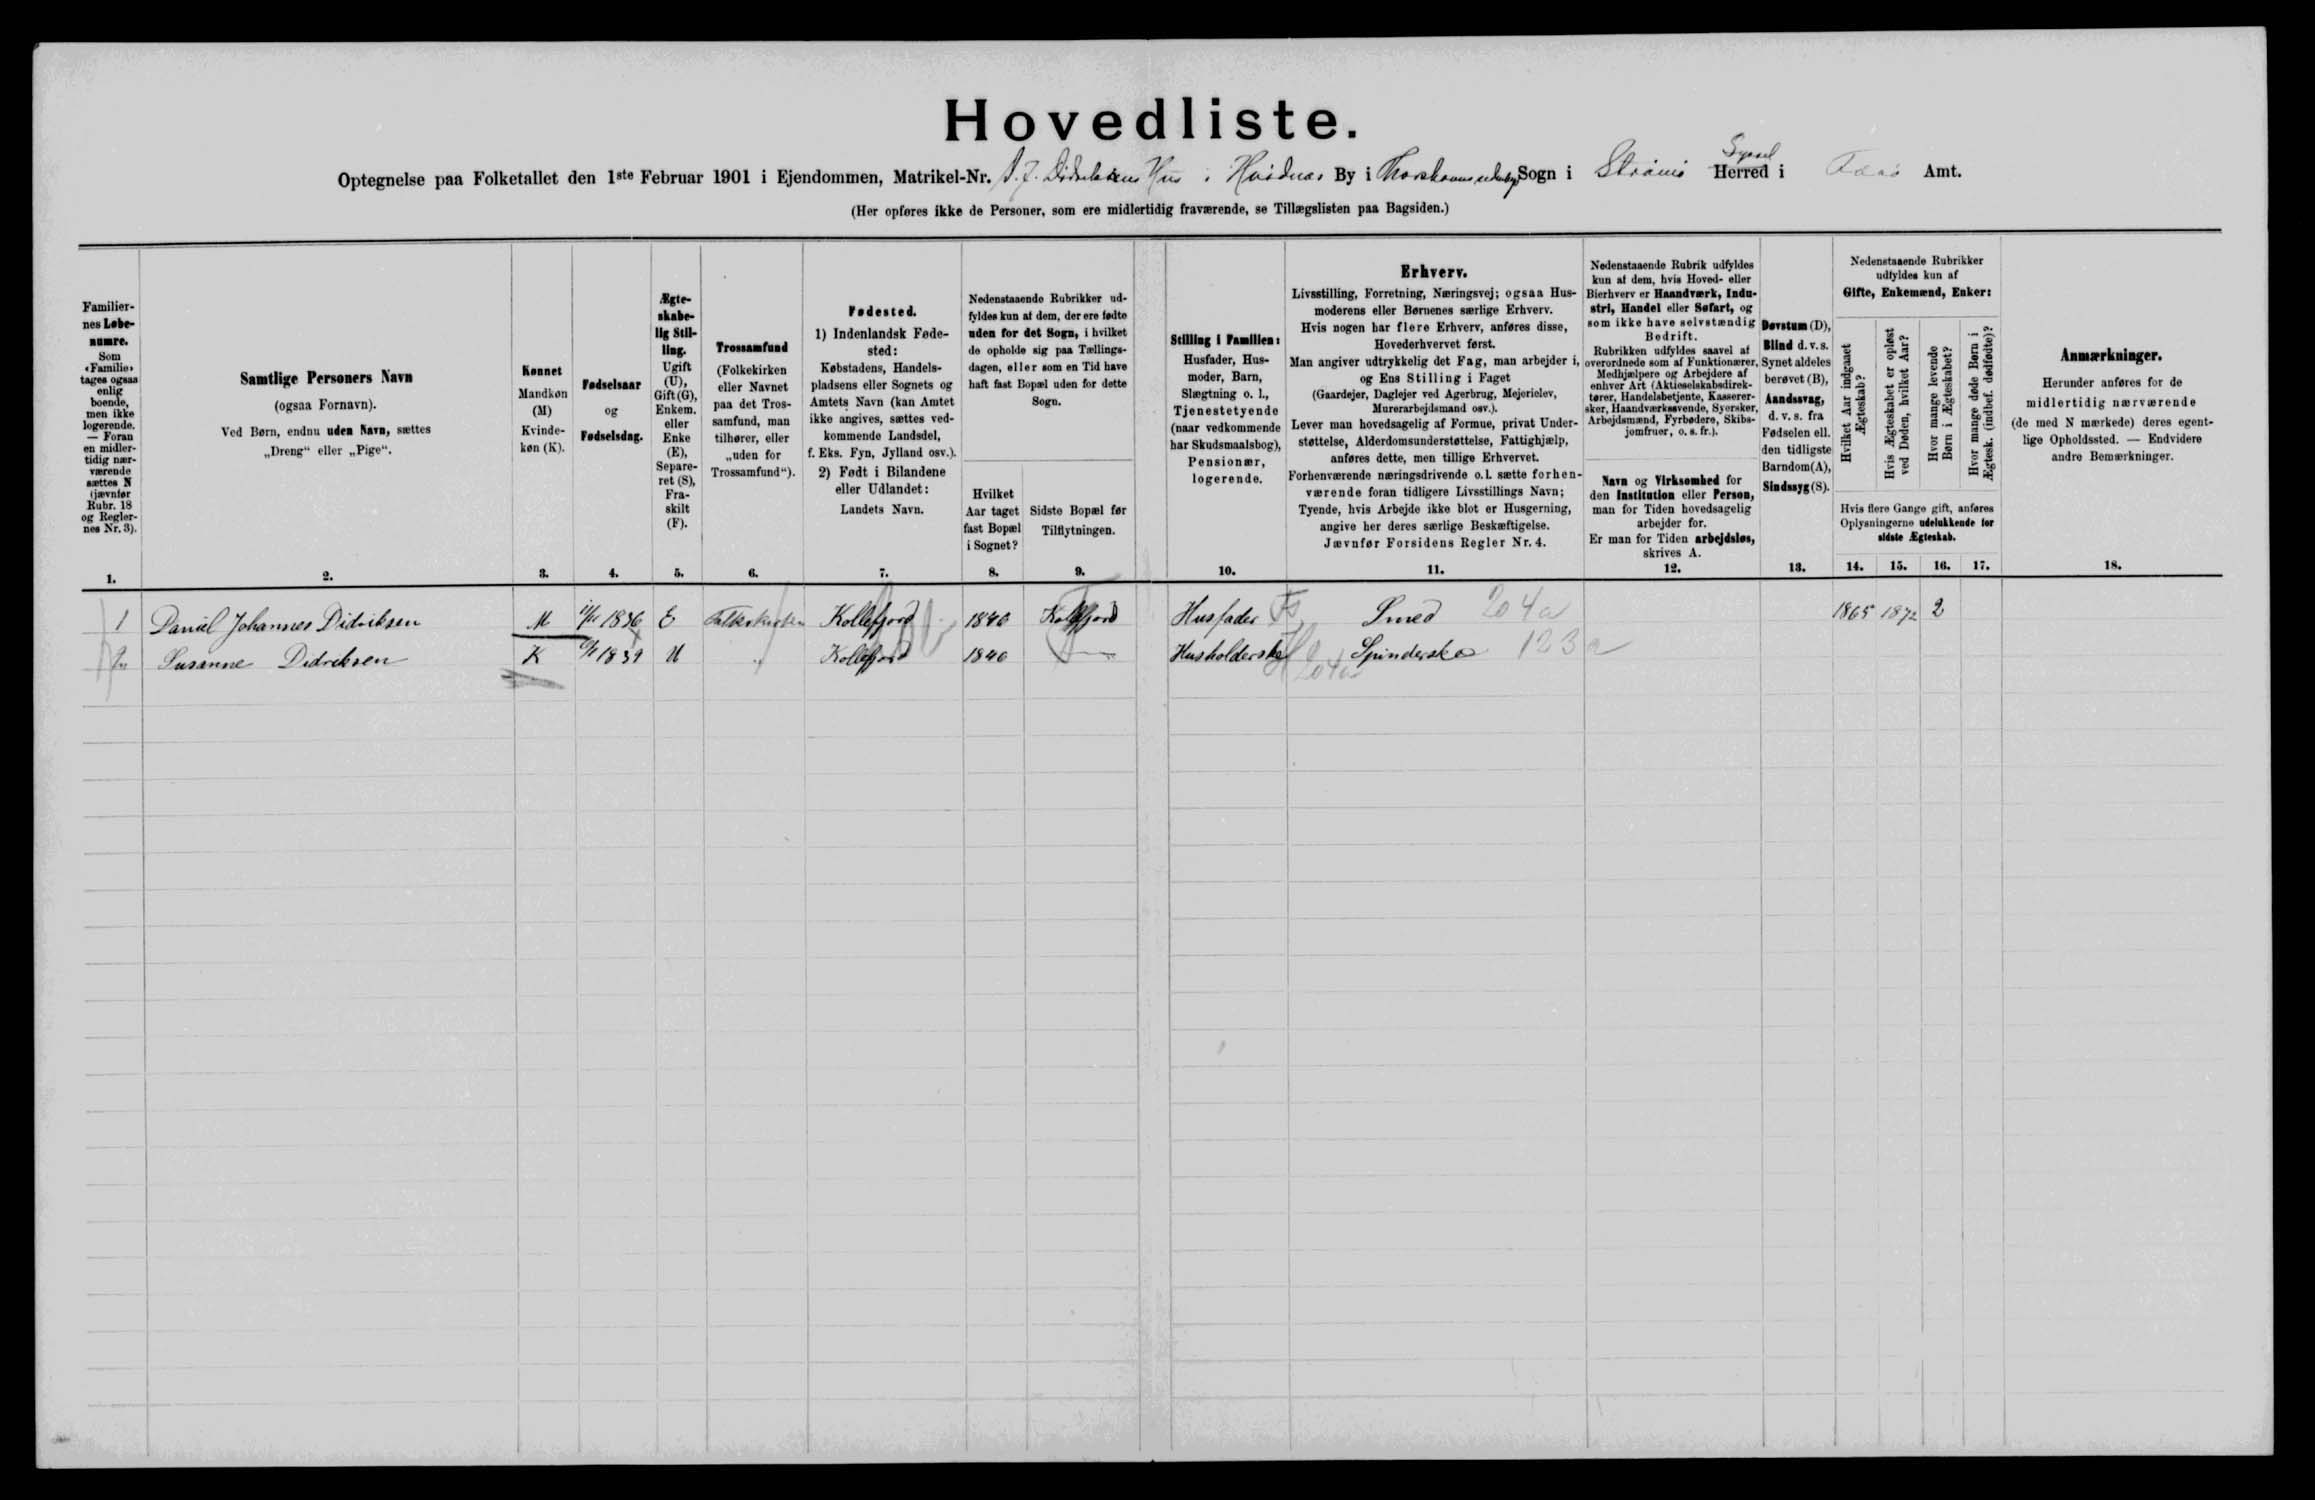 Hovedliste.
Optegnelse paa Folketallet den 1ste Februar 1901 i Ejendommen, Matrikel-Nr. D. J. Didriksens Hus i Hvidnæs By i Sogn i Strømø Herred Syssel i Færø Amt.
(Her opføres ikke de Personer, som ere midlertidig fraværende, se Tillægslisten paa Bagsiden.)
Familiernes Løbenumre.
Som «Familie» tages ogsaa enlig boende, men ikke logerende. — Foran en midlertidig nærværende sættes N (jævnfør Rubr. 18 og Reglernes Nr. 3).
1.
Samtlige Personers Navn
(ogsaa Fornavn).
Ved Børn, endnu uden Navn, sættes
„Dreng“ eller „Pige“.
2.
Kønnet
Mandkøn (M)
Kvindekøn (K).
3.
Fødselsaar
og
Fødselsdag.
4.
Ægteskabelig Stilling.
Ugift (U), Gift (G), Enkem. eller Enke (E), Separeret (S), Fraskilt (F).
5.
Trossamfund
(Folkekirken eller Navnet paa det Trossamfund, man tilhører, eller „uden for Trossamfund“).
6.
Fødested.
1) Indenlandsk Fødested:
Købstadens, Handelspladsens eller Sognets og Amtets Navn (kan Amtet ikke angives, sættes vedkommende Landsdel, f. Eks. Fyn, Jylland osv.).
2) Født i Bilandene eller Udlandet:
Landets Navn.
7.
Nedenstaaende Rubrikker udfyldes kun af dem, der ere fødte uden for det Sogn, i hvilket de opholde sig paa Tællingsdagen, eller som en Tid have haft fast Bopæl uden for dette Sogn.
Hvilket Aar taget fast Bopæl i Sognet?
8.
Sidste Bopæl før Tilflytningen.
9.
Stilling i Familien:
Husfader, Husmoder, Barn, Slægtning o. l., Tjenestetyende (naar vedkommende har Skudsmaalsbog), Pensionær, logerende.
10.
Erhverv.
Livsstilling, Forretning, Næringsvej; ogsaa Husmoderens eller Børnenes særlige Erhverv.
Hvis nogen har flere Erhverv, anføres disse, Hovederhvervet først.
Man angiver udtrykkelig det Fag, man arbejder i, og Ens Stilling i Faget
(Gaardejer, Daglejer ved Agerbrug, Mejerielev, Murerarbejdsmand osv.).
Lever man hovedsagelig af Formue, privat Understøttelse, Alderdomsunderstøttelse, Fattighjælp, anføres dette, men tillige Erhvervet.
Forhenværende næringsdrivende o. l. sætte forhenværende foran tidligere Livsstillings Navn; Tyende, hvis Arbejde ikke blot er Husgerning, angive her deres særlige Beskæftigelse.
Jævnfør Forsidens Regler Nr. 4.
11.
Nedenstaaende Rubrik udfyldes kun af dem, hvis Hoved- eller Bierhverv er Haandværk, Industri, Handel eller Søfart, og som ikke have selvstændig Bedrift.
Rubrikken udfyldes saavel af overordnede som af Funktionærer, Medhjælpere og Arbejdere af enhver Art (Aktieselskabsdirektører, Handelsbetjente, Kasserersker, Haandværkssvende, Syersker, Arbejdsmænd, Fyrbødere, Skibsjomfruer, o. s. fr.).
Navn og Virksomhed for den Institution eller Person, man for Tiden hovedsagelig arbejder for.
Er man for Tiden arbejdsløs, skrives A.
12.
Døvstum (D), Blind d. v. s. Synet aldeles berøvet (B), Aandssvag, d. v. s. fra Fødselen ell. den tidligste Barndom (A), Sindssyg (S).
13.
Nedenstaaende Rubrikker udfyldes kun af
Gifte, Enkemænd, Enker:
Hvilket Aar indgaaet Ægteskab?
Hvis Ægteskabet er opløst ved Døden, hvilket Aar?
Hvor mange levende Børn i Ægteskabet?
Hvor mange døde Børn i Ægtesk. (indbef. dødfødte)?
Hvis flere Gange gift, anføres Oplysningerne udelukkende for sidste Ægteskab.
14. 15. 16. 17.
Anmærkninger.
Herunder anføres for de midlertidig nærværende (de med N mærkede) deres egentlige Opholdssted. — Endvidere andre Bemærkninger.
18.
1 Daniel Johannes Didriksen M 1836 E Folkekirken Kollefjord 1840 Kollefjord Husfader Smed 204a 1865 1872 2
Susanne Didriksen K 1839 U " Kollefjord 1840 — Husholderske Spinderske 123a
204a